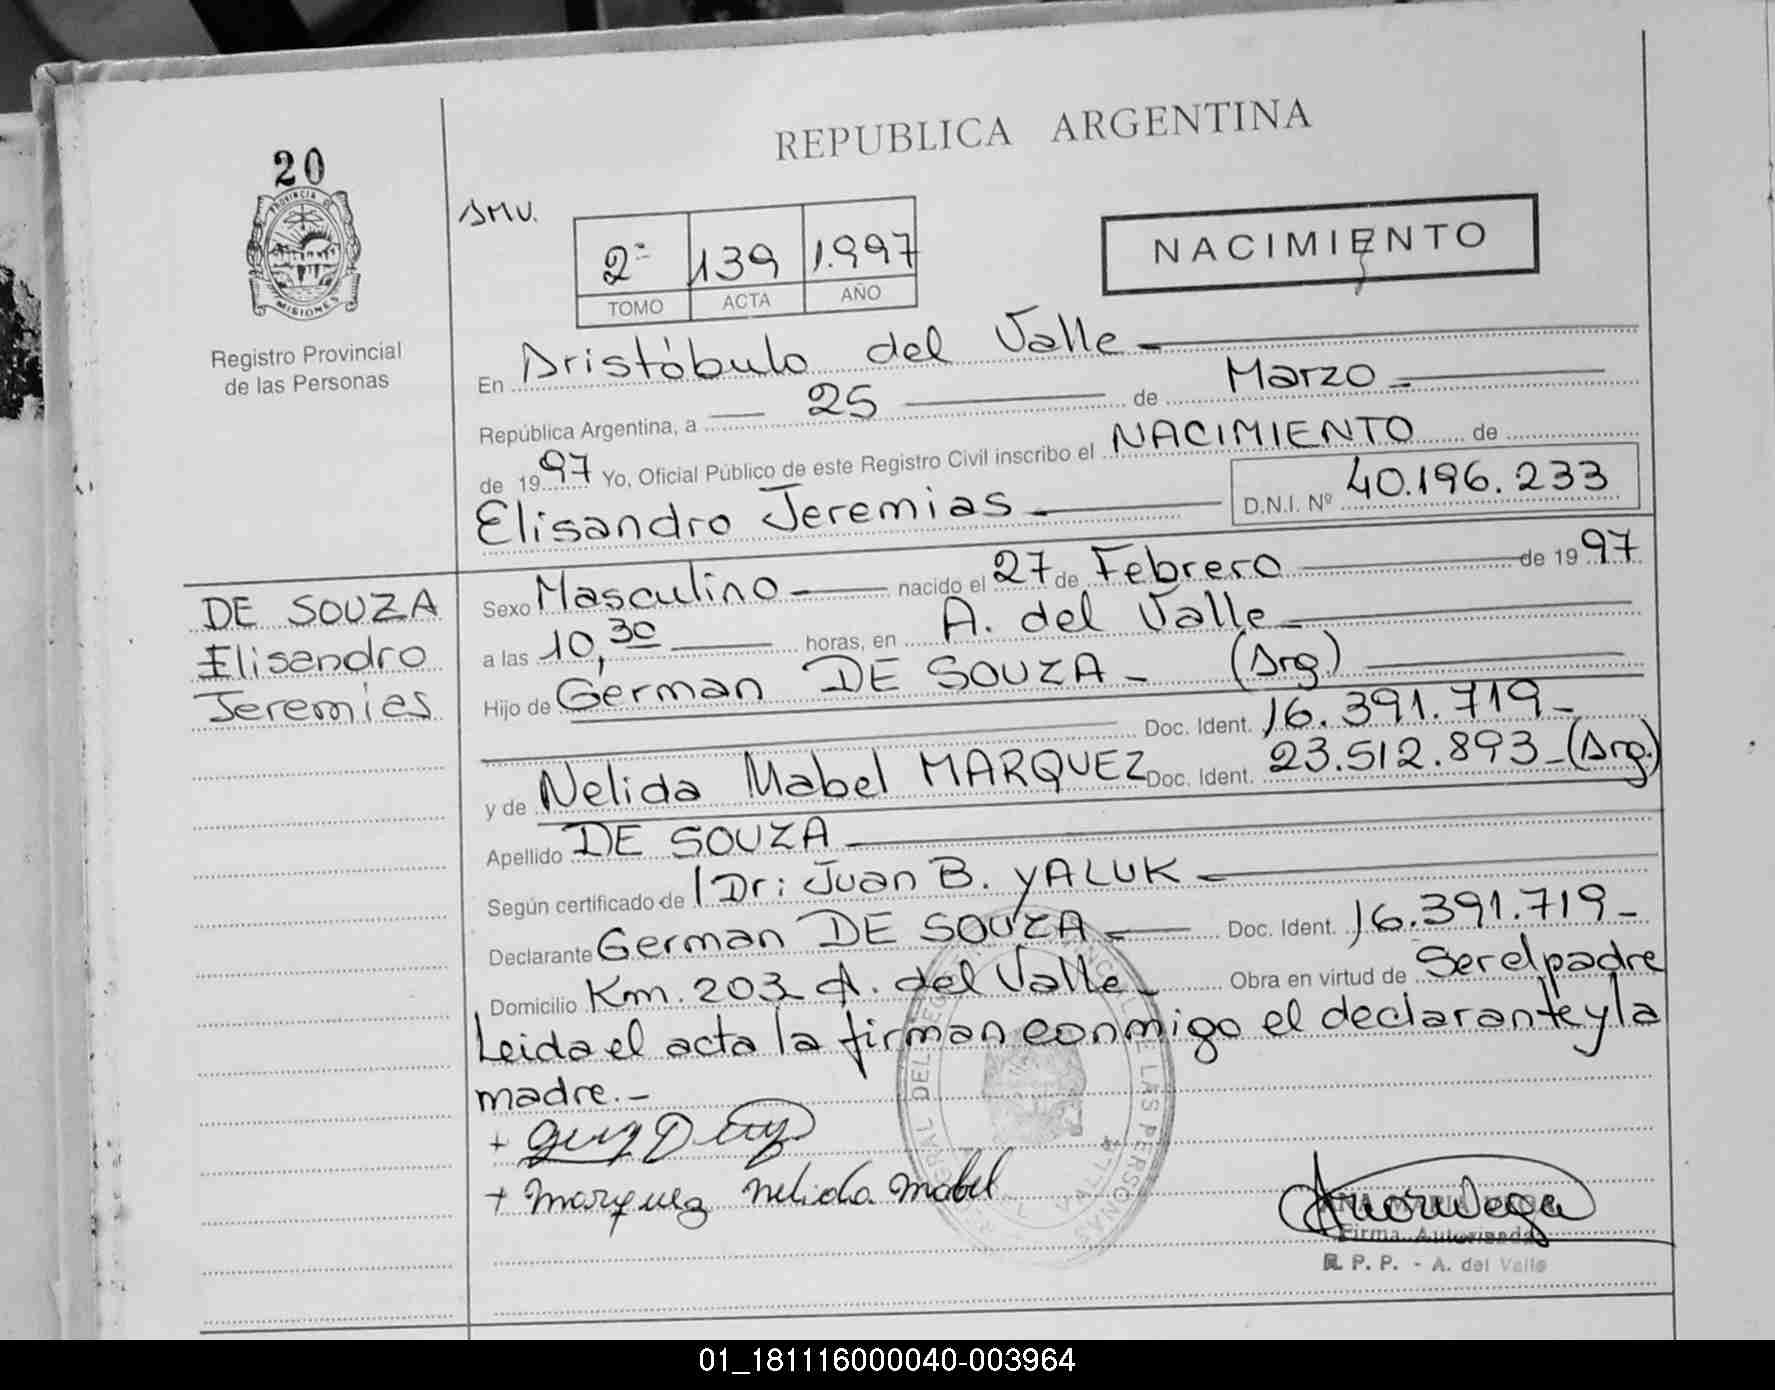 REPUBLICA ARGENTINA
20
PROVINCIA DE
MISIONES
Registro Provincial
de las Personas
SMV.
2º 139 1.997
TOMO ACTA AÑO
NACIMIENTO
En Aristóbulo del Valle
República Argentina, a 25 de Marzo
de 1997 Yo, Oficial Público de este Registro Civil inscribo el NACIMIENTO de
Elisandro Jeremias D.N.I. Nº 40.196.233
DE SOUZA
Elisandro
Jeremias
Sexo Masculino nacido el 27 de Febrero de 1997
a las 10,30 horas, en A. del Valle
Hijo de German DE SOUZA - (Arg.)
Doc. Ident. 16.391.719-
y de Nelida Mabel MARQUEZ Doc. Ident. 23.512.893-(Arg.)
Apellido DE SOUZA
Según certificado de Dr: Juan B. YALUK
Declarante German DE SOUZA Doc. Ident. 16.391.719-
Domicilio Km. 203 A. del Valle- Obra en virtud de Ser el padre
Leida el acta la firman conmigo el declarante y la
madre.-
+ Marquez Nelida Mabel
Firma Autorizada
R. P. P. - A. del Valle
01_181116000040-003964